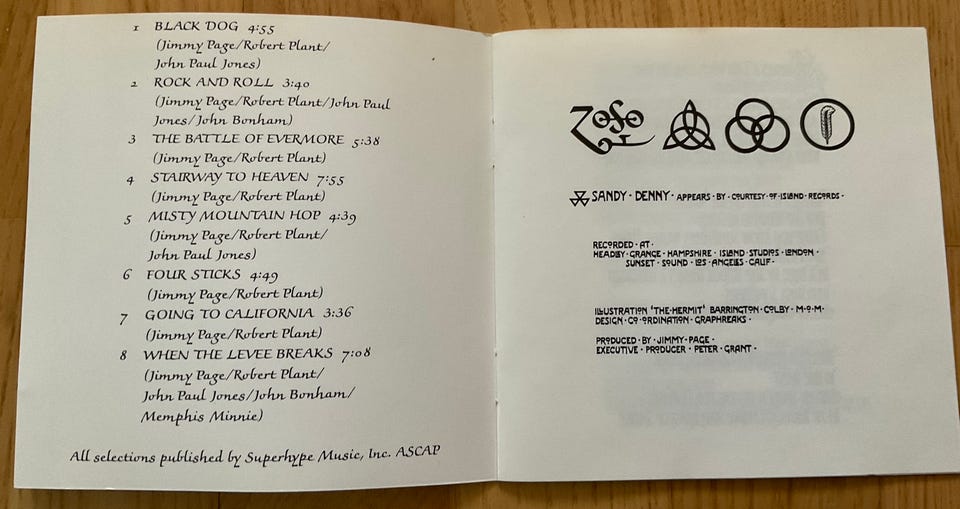 1 BLACK DOG 4:55
(Jimmy Page/Robert Plant/
John Paul Jones)
2 ROCK AND ROLL 3:40
(Jimmy Page/Robert Plant/John Paul
Jones/John Bonham)
3 THE BATTLE OF EVERMORE 5:38
(Jimmy Page/Robert Plant)
4 STAIRWAY TO HEAVEN 7:55
(Jimmy Page/Robert Plant)
5 MISTY MOUNTAIN HOP 4:39
(Jimmy Page/Robert Plant/
John Paul Jones)
6 FOUR STICKS 4:49
(Jimmy Page/Robert Plant)
7 GOING TO CALIFORNIA 3:36
(Jimmy Page/Robert Plant)
8 WHEN THE LEVEE BREAKS 7:08
(Jimmy Page/Robert Plant/
John Paul Jones/John Bonham/
Memphis Minnie)
All selections published by Superhype Music, Inc. ASCAP
ZOSO
SANDY · DENNY · APPEARS · BY · COURTESY · OF · ISLAND · RECORDS ·
RECORDED · AT ·
HEADLEY · GRANGE · HAMPSHIRE · ISLAND · STUDIOS · LONDON ·
SUNSET · SOUND · LOS · ANGELES · CALIF ·
ILLUSTRATION 'THE · HERMIT' BARRINGTON · COLBY · M·O·M·
DESIGN · CO·ORDINATION · GRAPHREAKS ·
PRODUCED · BY · JIMMY · PAGE ·
EXECUTIVE · PRODUCER · PETER · GRANT ·